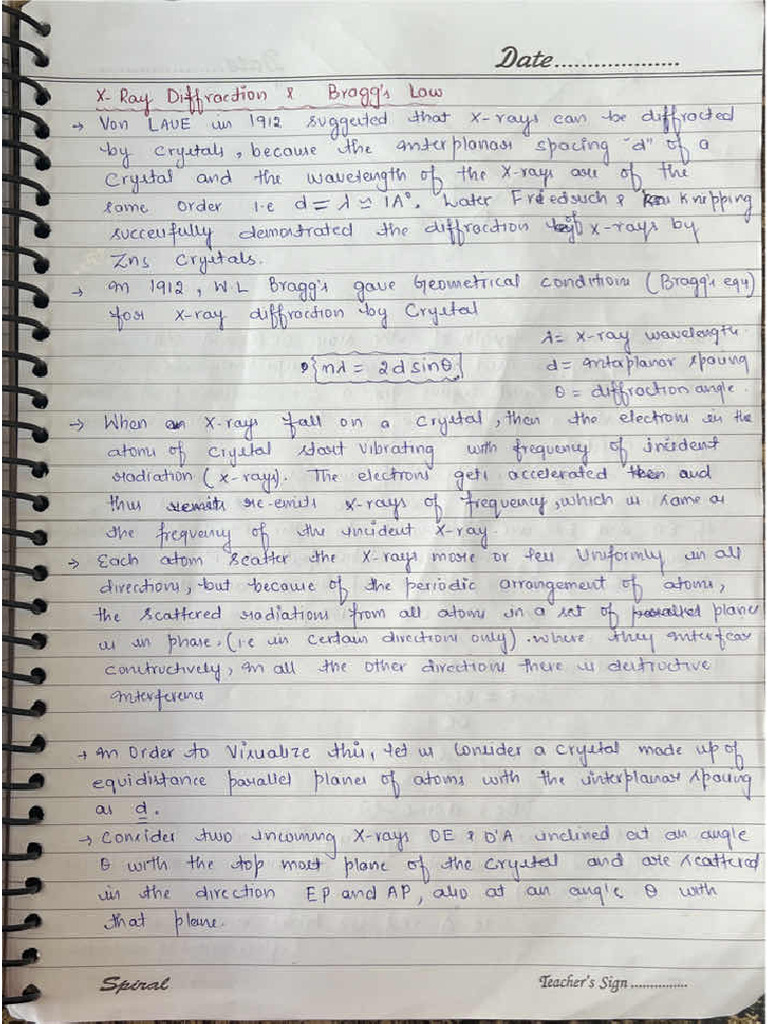 Date...................
X-Ray Diffraction & Bragg's Law
→ Von LAUE in 1912 suggested that X-rays can be diffracted
by crystals, because the interplanar spacing "d" of a
crystal and the wavelength of the X-rays are of the
same order i.e d = λ ≃ 1A°. Later Freedsuch & Knipping
succeufully demonstrated the diffraction of X-rays by
Zns crystals.
→ In 1912, W L Bragg's gave Geometrical conditions (Bragg's eqn)
for X-ray diffraction by Crystal
λ = X-ray wavelength.
{nλ = 2d sinθ}
d = intaplanar spacing
θ = diffraction angle.
→ When an X-rays fall on a crystal, then the electrons in the
atoms of crystal start vibrating with frequency of incident
radiation (X-rays). The electrons gets accelerated and
thus re-emits X-rays of frequency, which is same as
the frequency of the incident X-ray.
→ Each atom scatter the X-rays more or less Uniformly in all
directions, but because of the periodic arrangement of atoms,
the scattered radiations from all atoms in a set of planes
is in phase. (i.e in certain directions only). where they interfear
constructively, in all the other directions there is destructive
interference
→ In Order to Visualize this, let us consider a crystal made up of
equidistance parallel planes of atoms with the interplanar spacing
as d.
→ Consider two incoming X-rays OE & O'A inclined at an angle
θ with the top most plane of the crystal and are scattered
in the direction EP and AP, also at an angle θ with
that plane.
Spiral
Teacher's Sign ...............